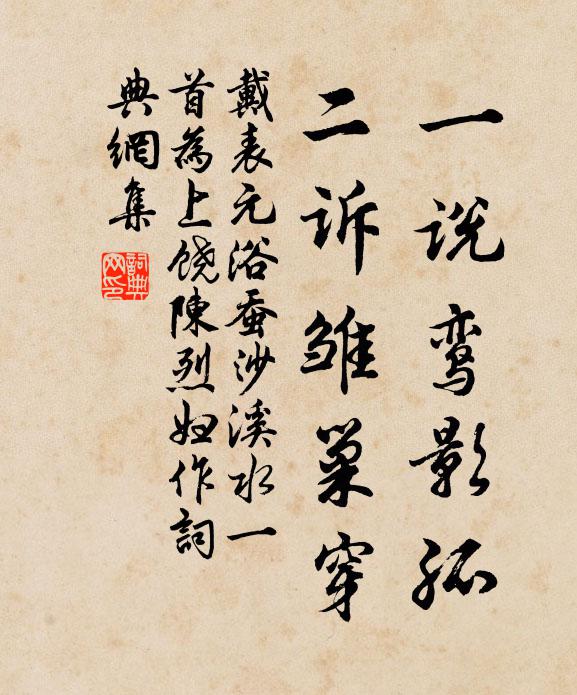 一说鸾影孤
二诉雏巢穿
戴表元浴蚕沙溪水一
首為上饶陳烈妇作詞
典網集
詞典網印